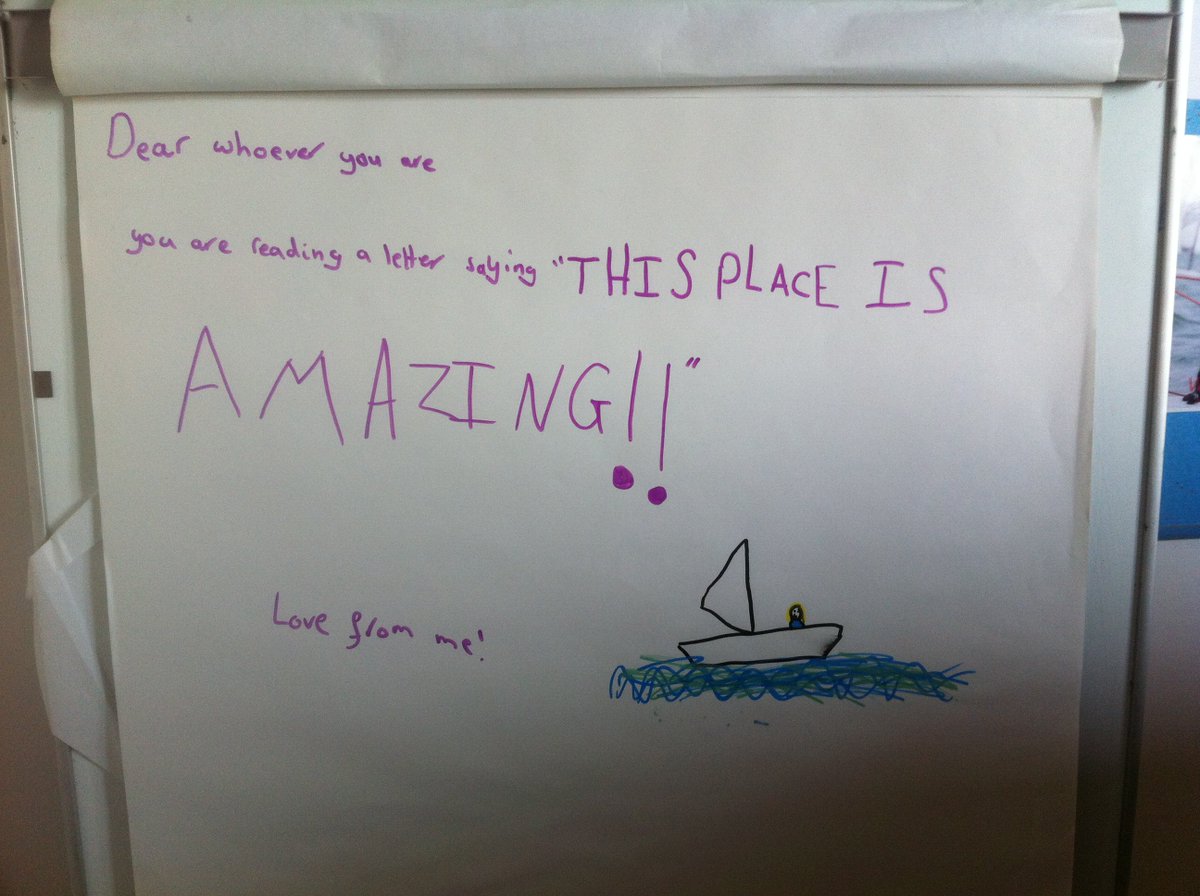 Dear whoever you are
you are reading a letter saying "THIS PLACE IS
AMAZING!!"
Love from me!